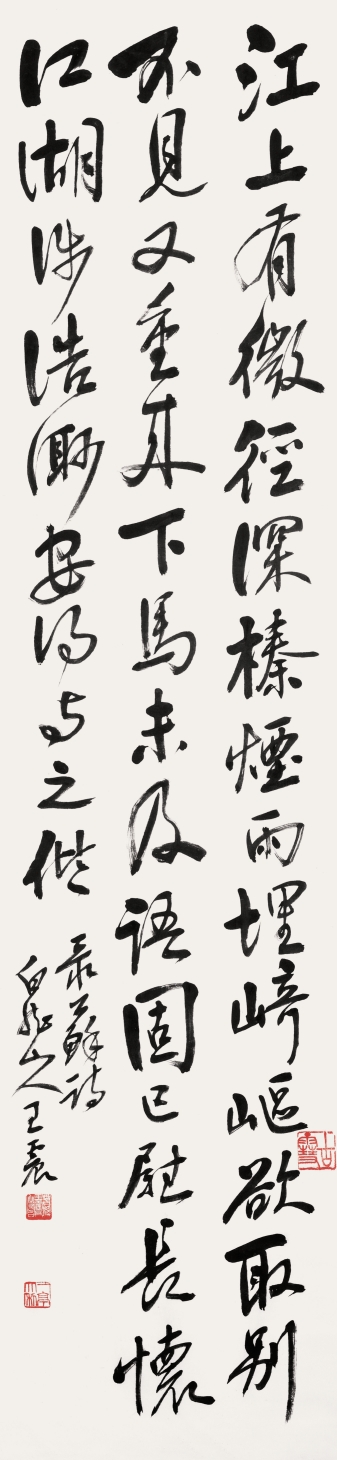 江上有微徑深榛煙雨埋崎嶇欲取別
不見又重來下馬未及語固已慰長懷
江湖涉浩渺安得与之偕
录蘇詩
白龍山人王震